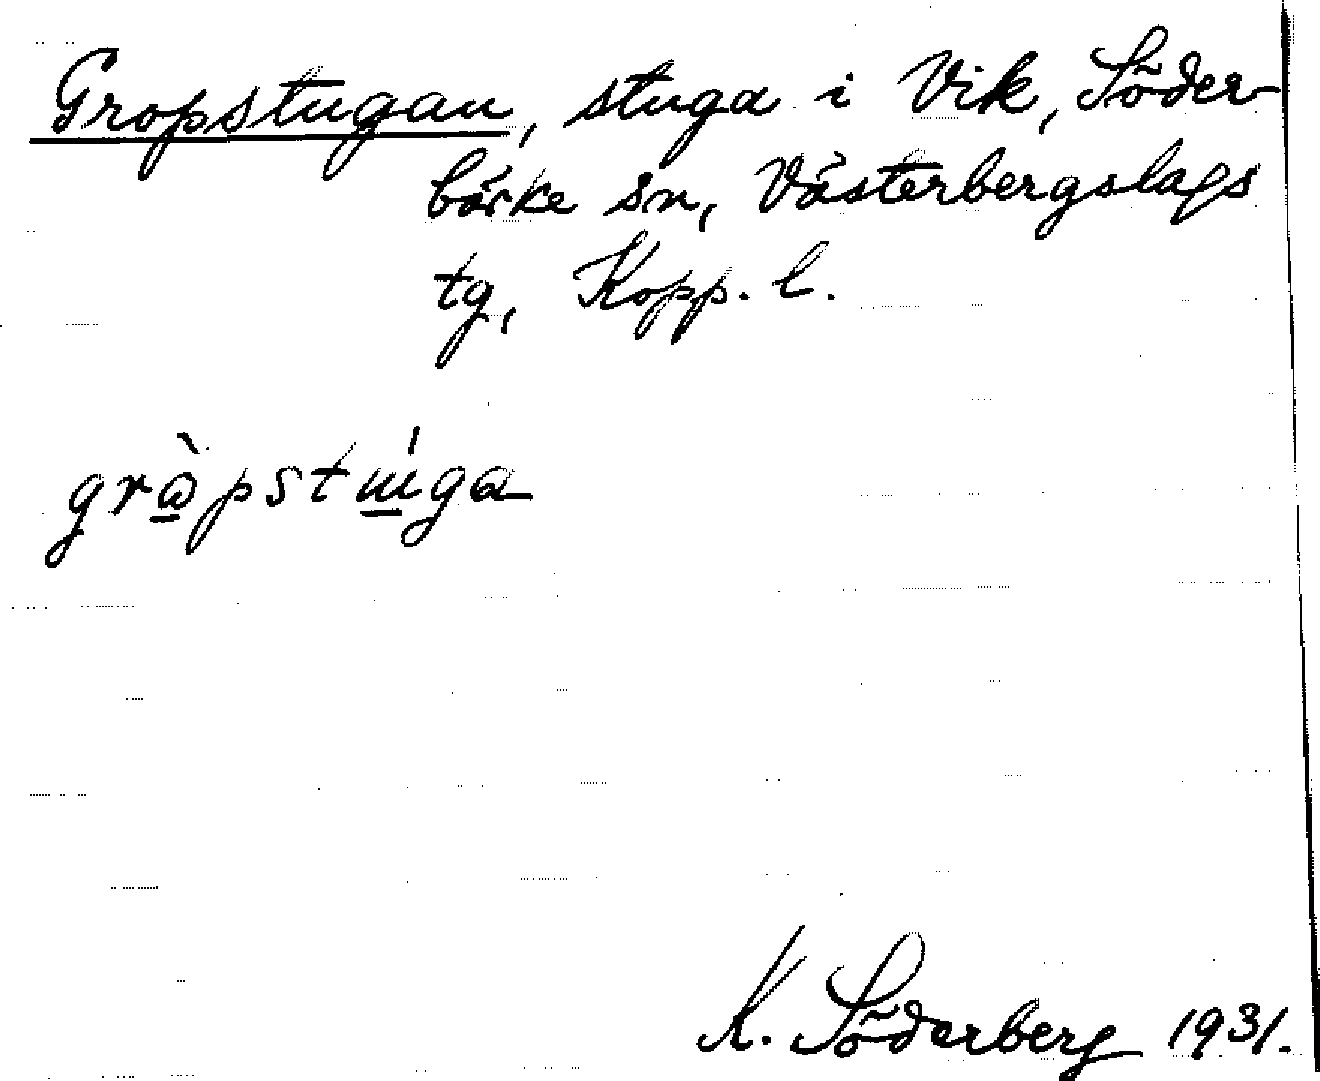 Gropstugan, stuga i Vik, Söder-
bärke sn, Västerbergslags
tg, Kopp. l.
grå̀pstɯ́ga
K. Söderberg 1931.